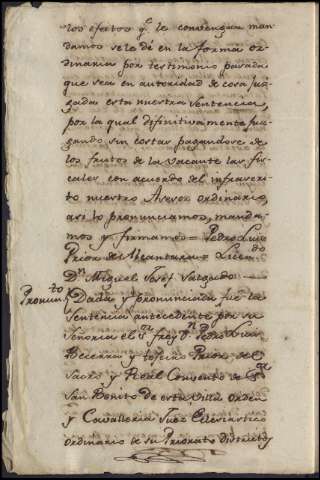 los efatos q.e le convengan man
damos se le dé en la forma or
dinaria por testimonio pasada
que sea en autoridad de cosa juz
gada esta nuestra Sentencia,
por la qual difinitivamente juz
gando sin costas pagandose de
los frutos de la vacante las fis
cales con acuerdo del infrascri
to nuestro Asesor ordinario,
asi lo pronunciamos, manda
mos y firmamos = Pedro Luis
Prior de Alcantara = Licen.do
D.n Miguel Josef Salgado
Pronun.to Dada y pronunciada fue la
Sentencia antecedente por su
Señoria el S.or frey D.n Pedro Luis
Becerra y Prior del
Sacro y Real Convento de
San Benito de esta Villa orden
y Cavalleria Juez Eclesiastico
ordinario de su Priorato Distrito y